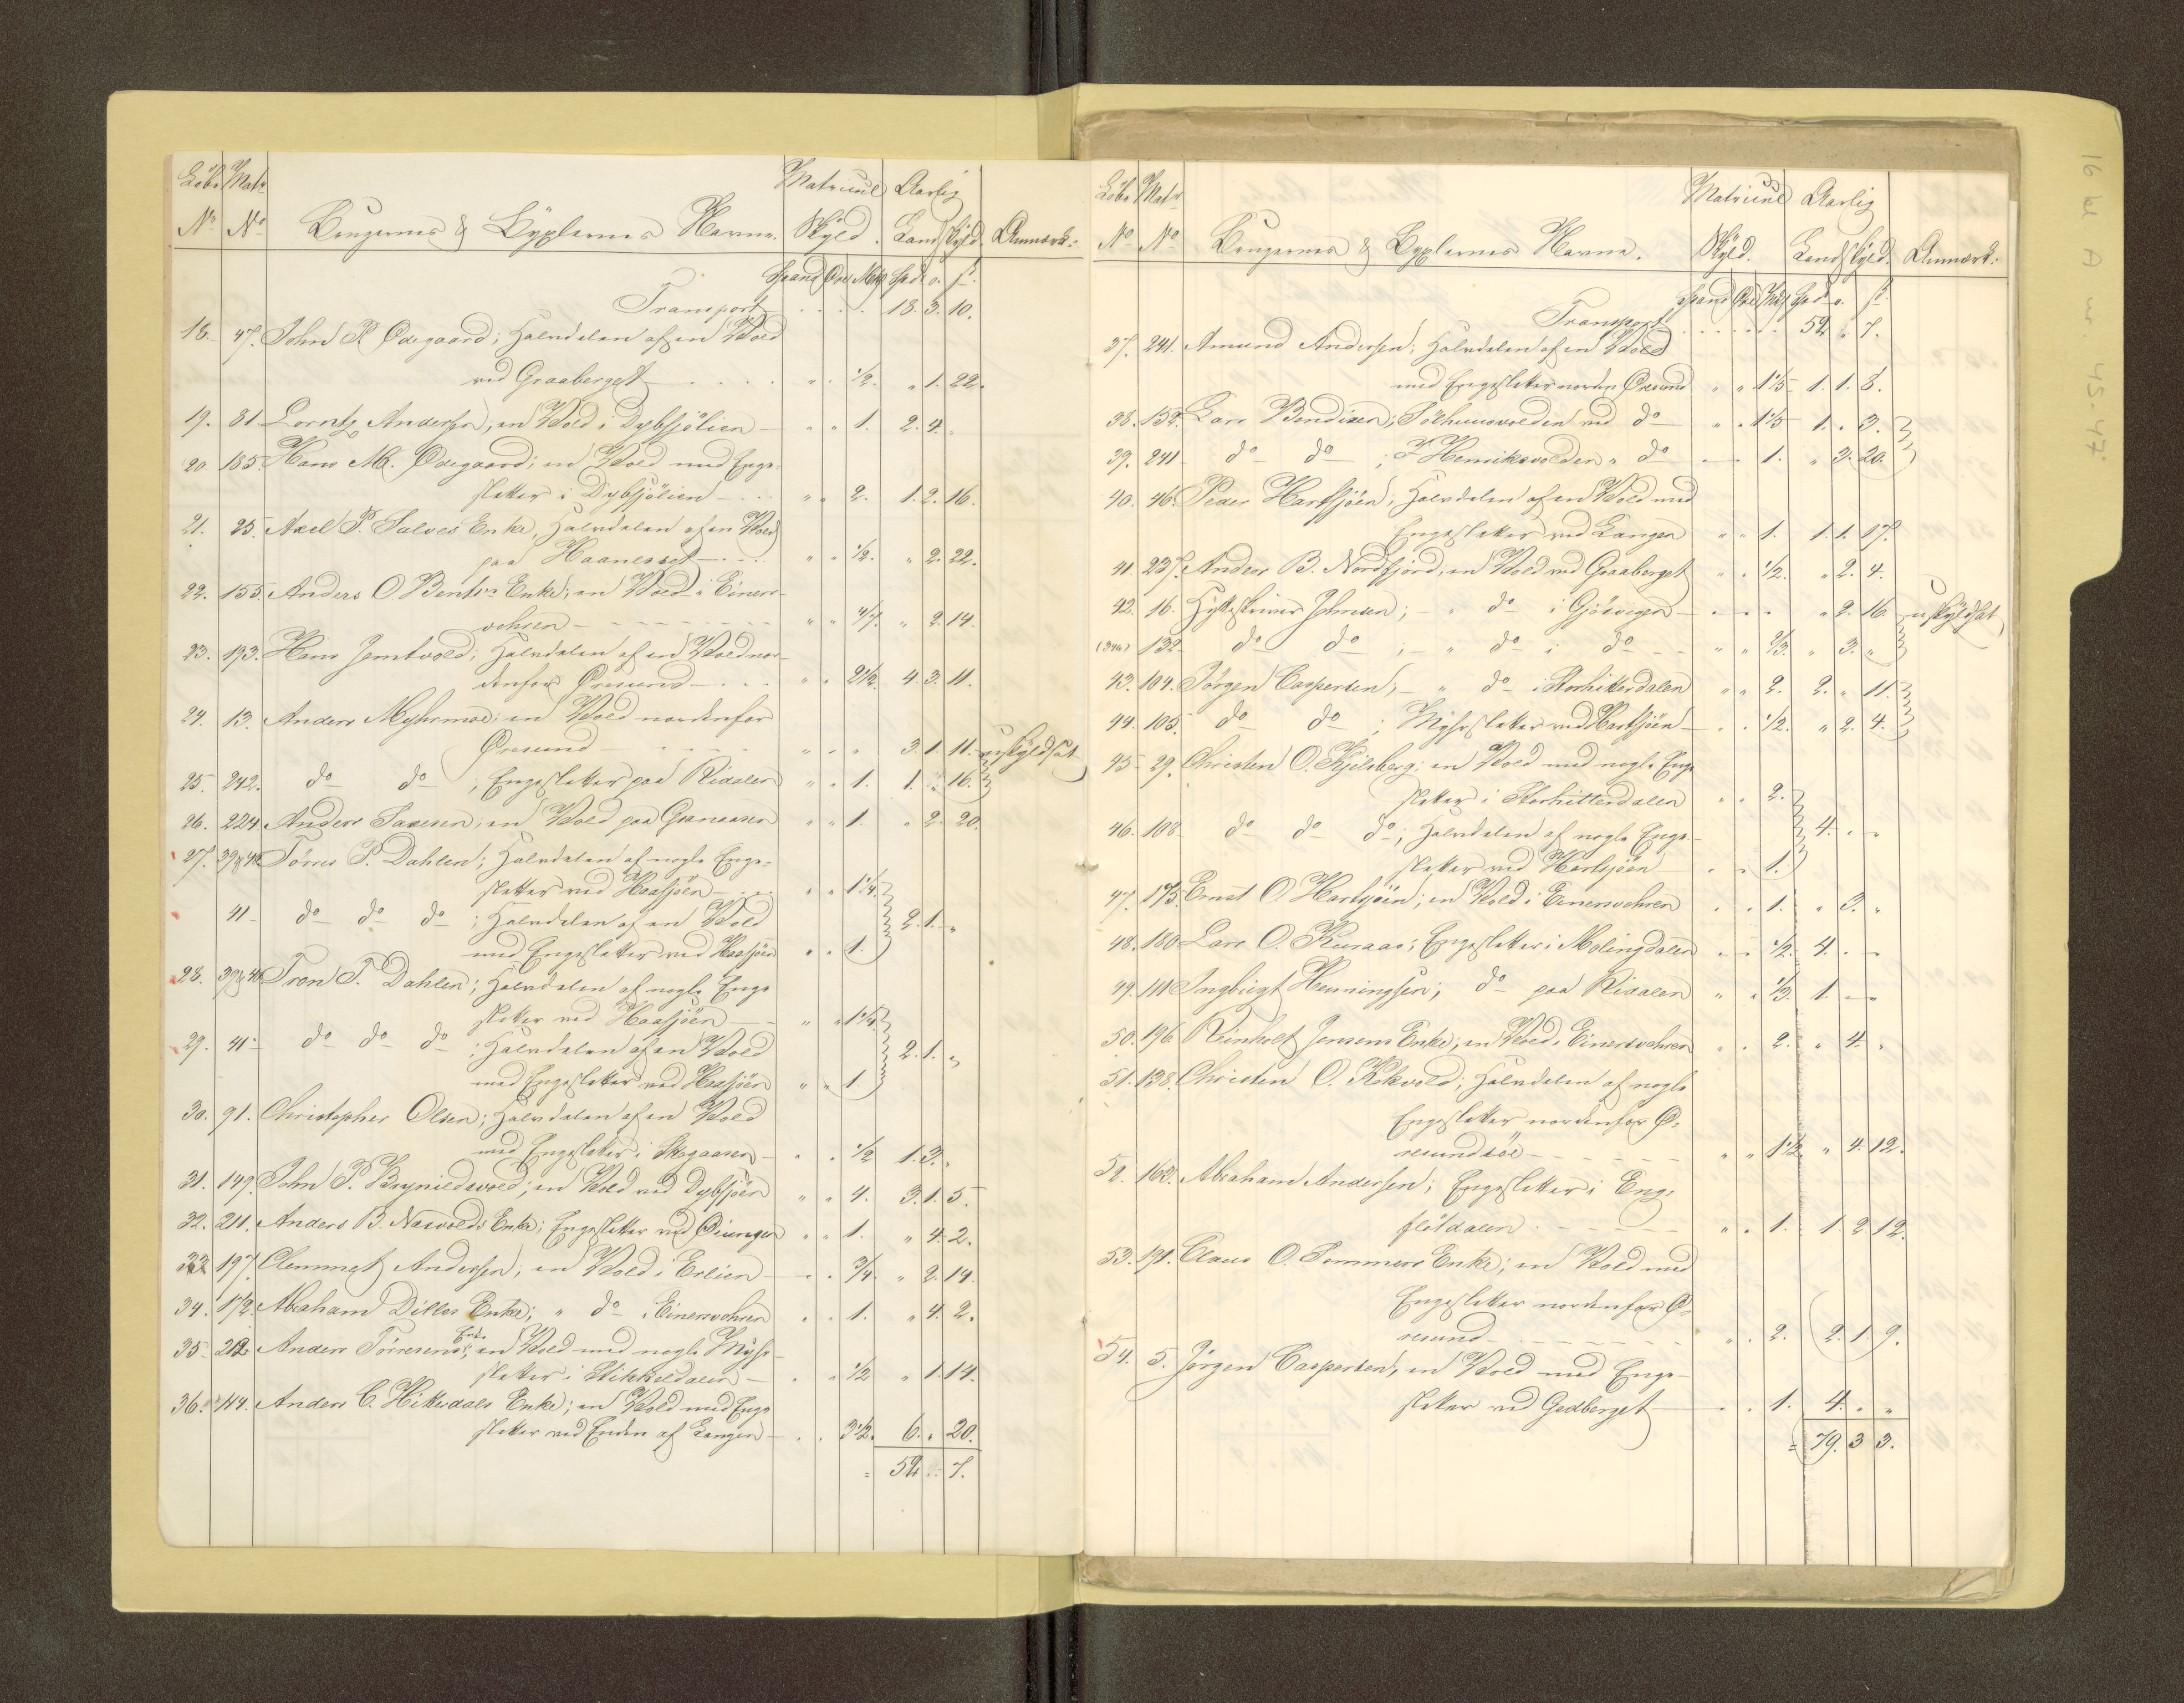 Løbe Matr Matricul Aarlig
No No Brugernes & Byxlernes Navne. Skyld. Landskyld. Anmærk:
Spand Øre Mkl Spd. o. s.
Transport . . . . 18. 3. 10.
18. 47. John P. Ødegaard; Halvdelen af en Vold
ved Graaberget . . . " " 1/2. " 1. 22.
19. 81. Lorntz Andersen; en Vold i Dybsjölien — " " 1. 2. 4. "
20. 185. Hans M. Ødegaard; en Vold med Enge-
sletter i Dybsjölien — " " 2. 1. 2. 16.
21. 25. Axel P. Salves Enke, Halvdelen af en Vold
paa Haanesset — " " 1/2. " 2. 22.
22. 155. Anders O. Bentzs Enke; en Vold i Einer-
vohren — " " 4/7. " 2. 14.
23. 193. Hans Jemtvold; Halvdelen af en Vold nor-
denfor Øresund — " " 2 1/2. 4. 3. 11.
24. 13. Anders Myhrmoe; en Vold nordenfor
Øresund — " " " 3. 1. 11. uskyldsat
25. 242. do do; Engesletter paa Rixalen " " 1. 1. " 16.
26. 224. Anders Saxesen; en Vold paa Granaasen " " 1. " 2. 20.
27. 39 & 40. Törres P. Dahlen; Halvdelen af nogle Enge-
sletter ved Haasjöen — " " 1 1/4.
41 do do do; Halvdelen af en Vold 2. 1. "
med Engesletter ved Haasjöen " " 1.
28. 39 & 40. Tron P. Dahlen; Halvdelen af nogle Enge-
sletter ved Haasjöen — " " 1 1/4.
29. 41 do do do; Halvdelen af en Vold 2. 1. "
med Engesletter ved Haasjöen " " 1.
30. 91. Christopher Olsen; Halvdelen af en Vold
med Engesletter i Skogaasen — " " 1/2 1. 3. "
31. 149. John P. Brynildsvold; en Vold ved Dybsjöen " " 4. 3. 1. 5.
32. 211. Anders B. Nasvolds Enke; Engesletter ved Oiungen " " 1. " 4. 2.
33 197. Clemmet Andersen; en Vold i Erlien — " " 3/4. " 2. 14.
34. 172. Abraham Dilles Enke; " do i Einervohren " " 1. " 4. 2.
35 212. Anders Törresens Enke, en Vold med nogle Myhr-
sletter i Stikkeldalen — " " 1/2 " 1. 14.
36. 114. Anders C. Hittesdals Enke; en Vold med Enge-
sletter ved Enden af Langen — " " 3 1/2. 6. " 20.
= 52. " 7.
Løbe Matr Matricul Aarlig
No No Brugernes & Byxlernes Navne. Skyld. Landskyld. Anmærk:
Spand Øre Mkl Spd. o. s.
Transport . . . . 52 " 7.
37. 241. Amund Andersen; Halvdelen af en Vold
med Engesletter norden Øresund " " 1 1/5 1. 1. 8.
38. 152. Lars Bendixen; Sölhuusvolden ved do " " 1 1/5 1. " 3.
39. 241 do do; Henriksvolden " do " " 1. " 3. 20.
40. 46. Peder Hartsjöen; Halvdelen af en Vold med
Engesletter ved Langen " " 1. 1. 1. 17.
41. 237. Anders B. Nordfjord; en Vold ved Graaberget " " 1/2. " 2. 4.
42. 16. Hytteskriver Johnsen; — " do i Gjösvigen — " 2. 16. uskyldsat
(34a) 132. do do; — " do i do — " " 2/3. " 3. "
43. 104. Jörgen Caspersen, — " do i Storhitterdalen " " 2. 2. " 11.
44. 105. do do; Myhrsletter ved Hartsjöen — " " 1/2. " 2. 4.
45 29. Christen O. Kjelsberg; en Vold med nogle Enge-
sletter i Storhitterdalen " " 2.
46. 108. do do do; Halvdelen af nogle Enge- 4. " "
sletter ved Hartsjöen " " 1.
47. 175. Ernst O. Hartsjöen; en Vold i Einervohren " " 1. " 3. "
48. 180. Lars O. Kuraas; Engesletter i Molingdalen " " 1/2. 4. " "
49. 111. Ingbrigt Henningsen; do paa Rixalen " " 1/3. 1. " "
50. 196. Reinholt Jensens Enke; en Vold i Einervohren " " 2. " 4. "
51. 138. Christen O. Kokvold; Halvdelen af nogle
Engesletter nordenfor Ø-
resundsöe — " " 1 1/2. " 4. 12.
52. 162. Abraham Andersen; Engesletter i Enge-
flötdalen — " " 1. 1. 2. 12.
53. 191. Claus O. Sommers Enke; en Vold med
Engesletter nordenfor Ø-
resund — " " 2. 2. 1. 9.
54. 5. Jörgen Caspersen, en Vold med Enge-
sletter ved Gedberget — " " 1. 4. " "
= 79. 3 3.